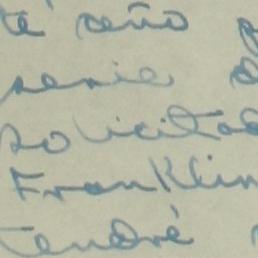 te año
serie
solicitad
Franklin
tendré